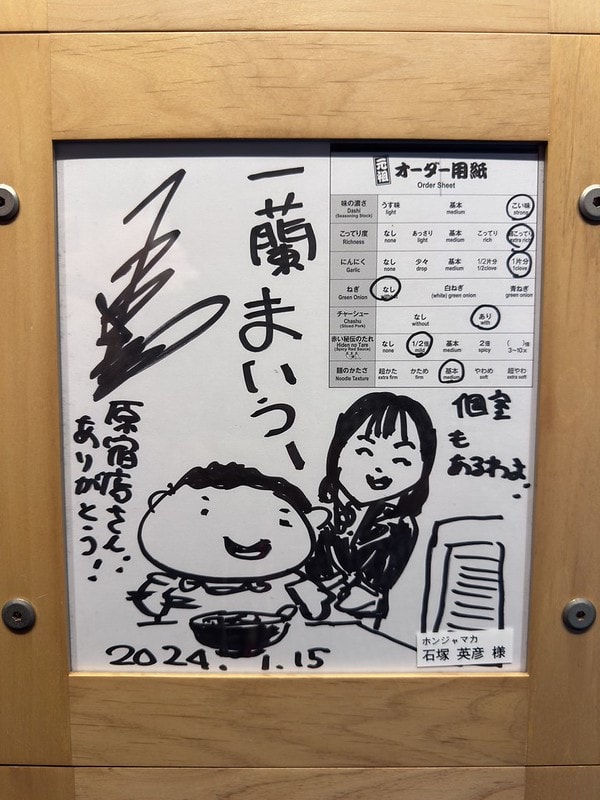 一蘭まいうー
原宿店さん、
ありがとう!!
個室
も
あるわよ。
2024.1.15
元祖 オーダー用紙
Order Sheet
味の濃さ Dashi (Seasoning Stock) うす味 light 基本 medium こい味 strong
こってり度 Richness なし none あっさり light 基本 medium こってり rich 超こってり extra rich
にんにく Garlic なし none 少々 drop 基本 medium 1/2片分 1/2clove 1片分 1clove
ねぎ Green Onion なし without 白ねぎ (white) green onion 青ねぎ green onion
チャーシュー Chashu (Sliced Pork) なし without あり with
赤い秘伝のたれ Hiden no Tare (Spicy Red Sauce) なし none 1/2倍 mild 基本 medium 2倍 spicy ( )倍 3~10x
麺のかたさ Noodle Texture 超かた extra firm かため firm 基本 medium やわめ soft 超やわ extra soft
ホンジャマカ
石塚 英彦 様